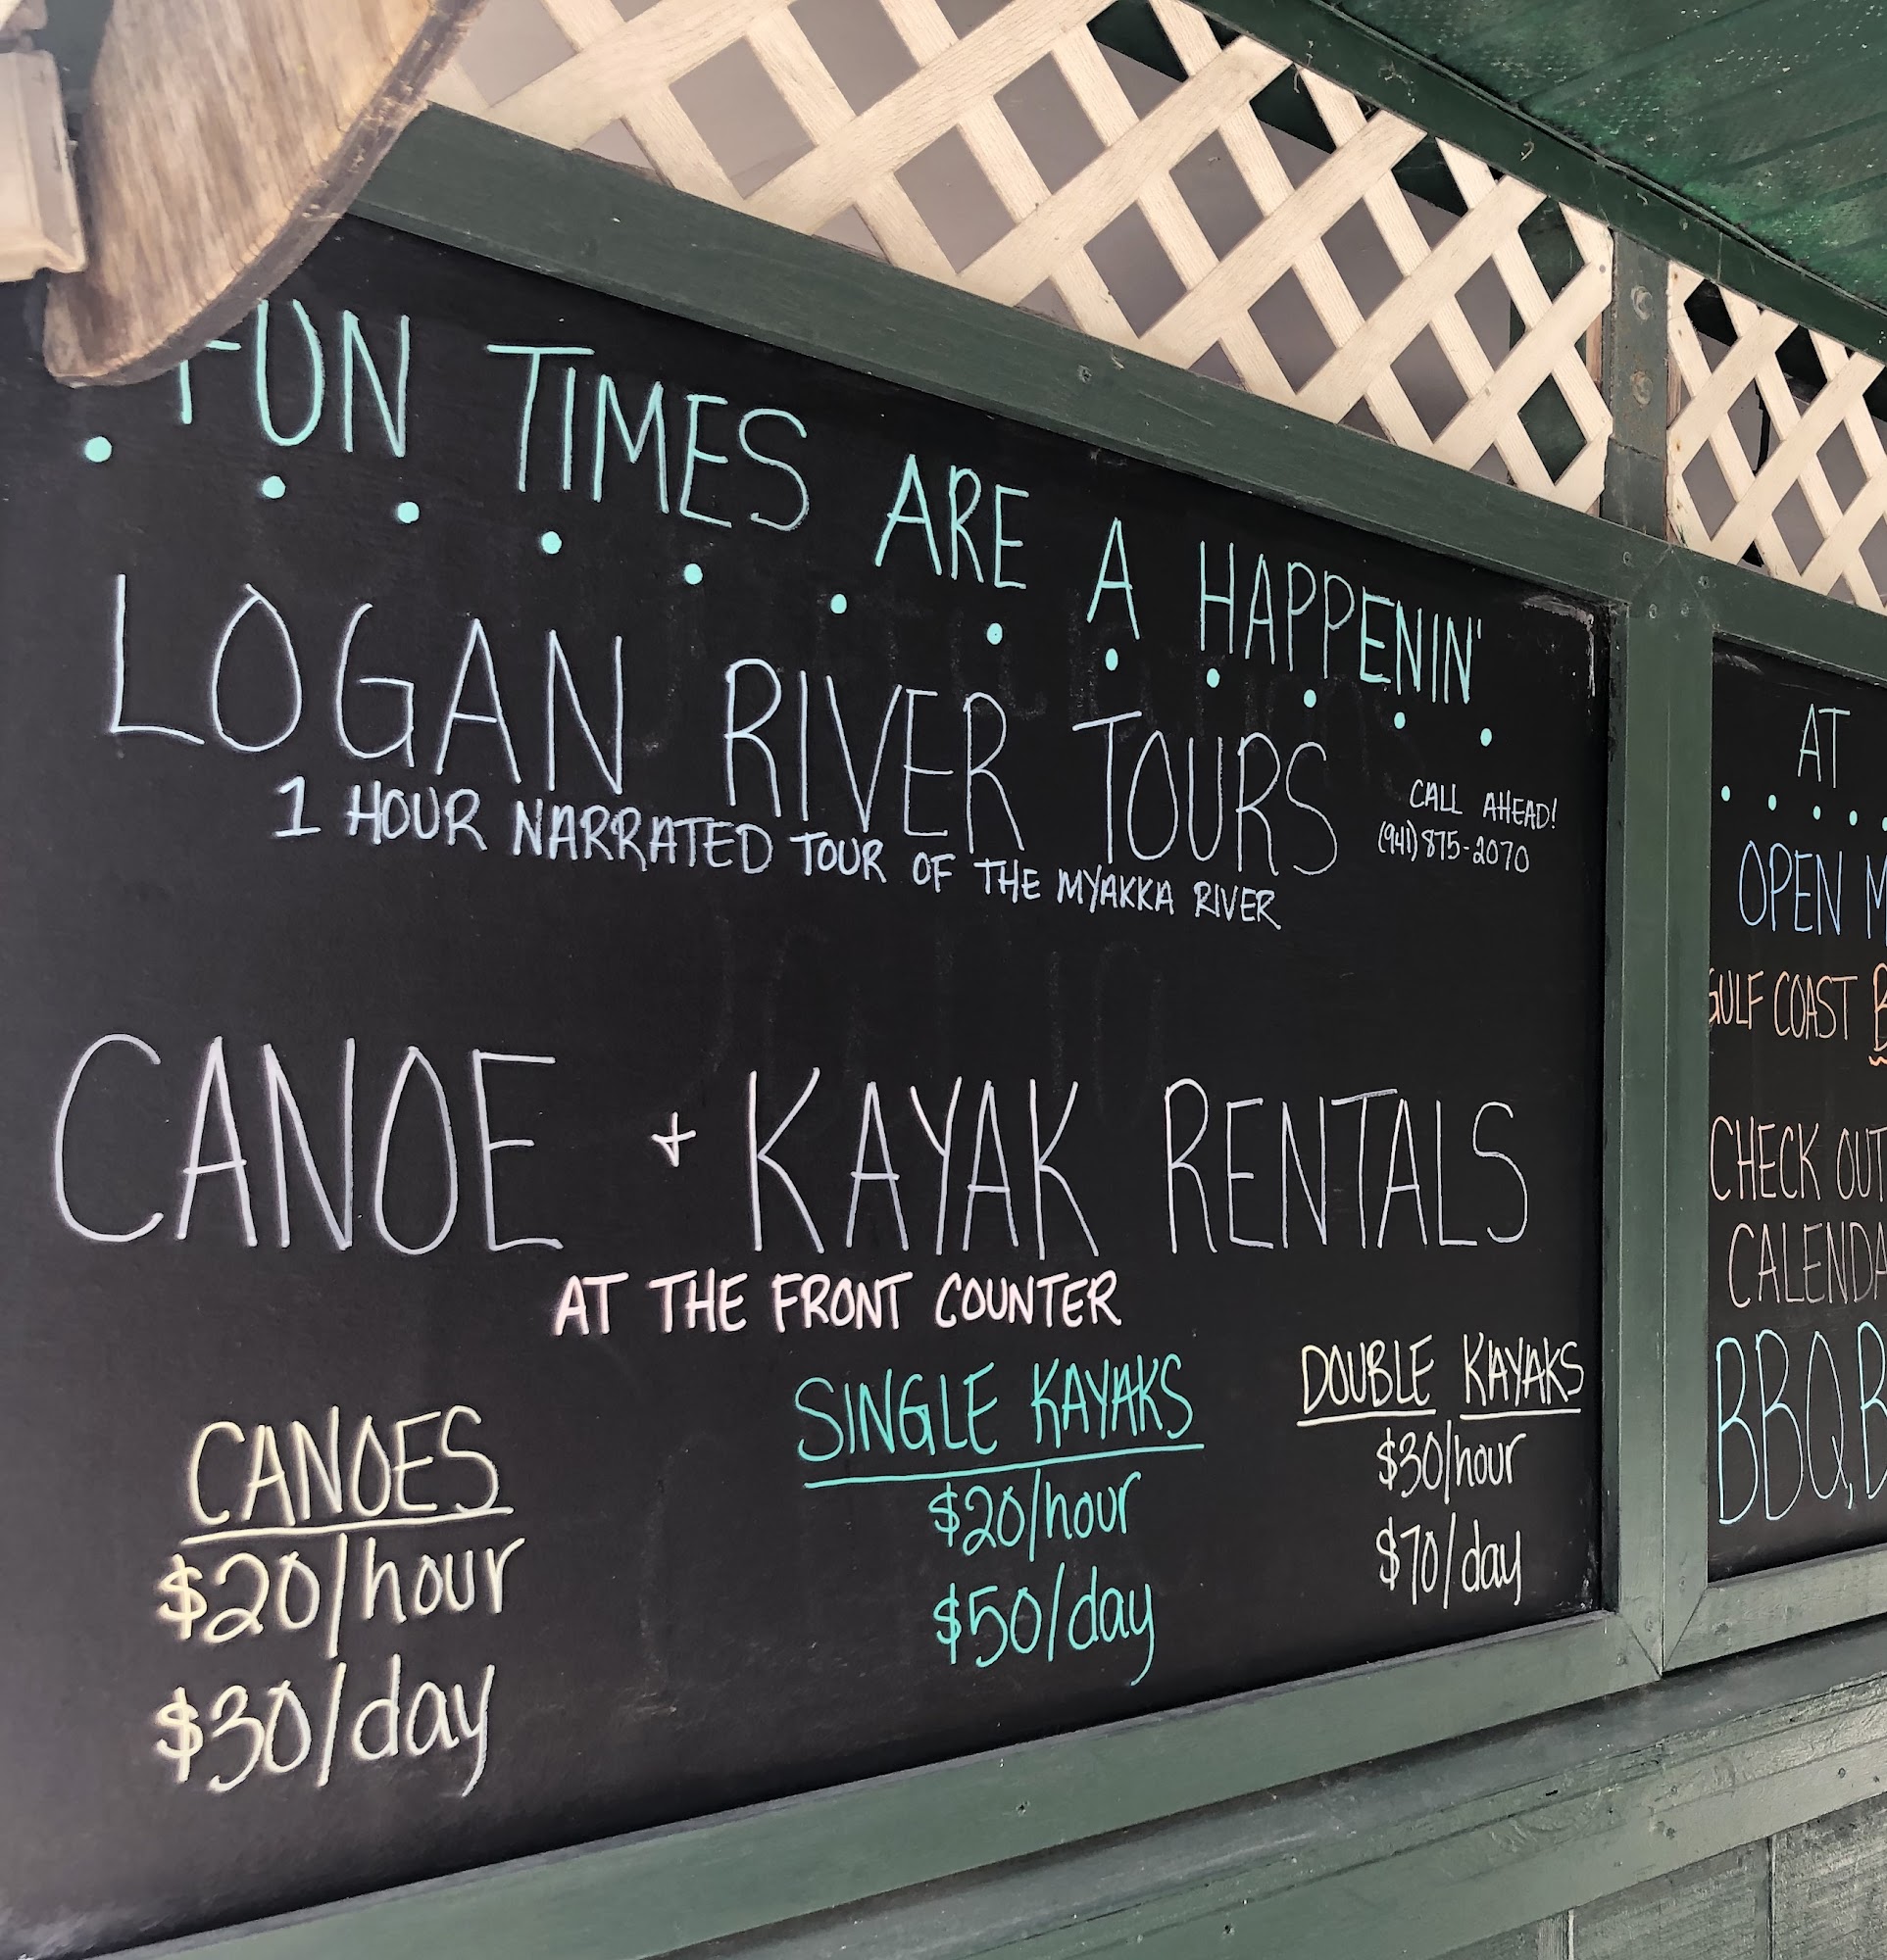 FUN TIMES ARE A HAPPENIN'
LOGAN RIVER TOURS
1 HOUR NARRATED TOUR OF THE MYAKKA RIVER
CALL AHEAD!
(941) 875-2070
CANOE + KAYAK RENTALS
AT THE FRONT COUNTER
CANOES
$20/hour
$30/day
SINGLE KAYAKS
$20/hour
$50/day
DOUBLE KAYAKS
$30/hour
$70/day
AT
OPEN M
GULF COAST B
CHECK OUT
CALENDA
BBQ, B